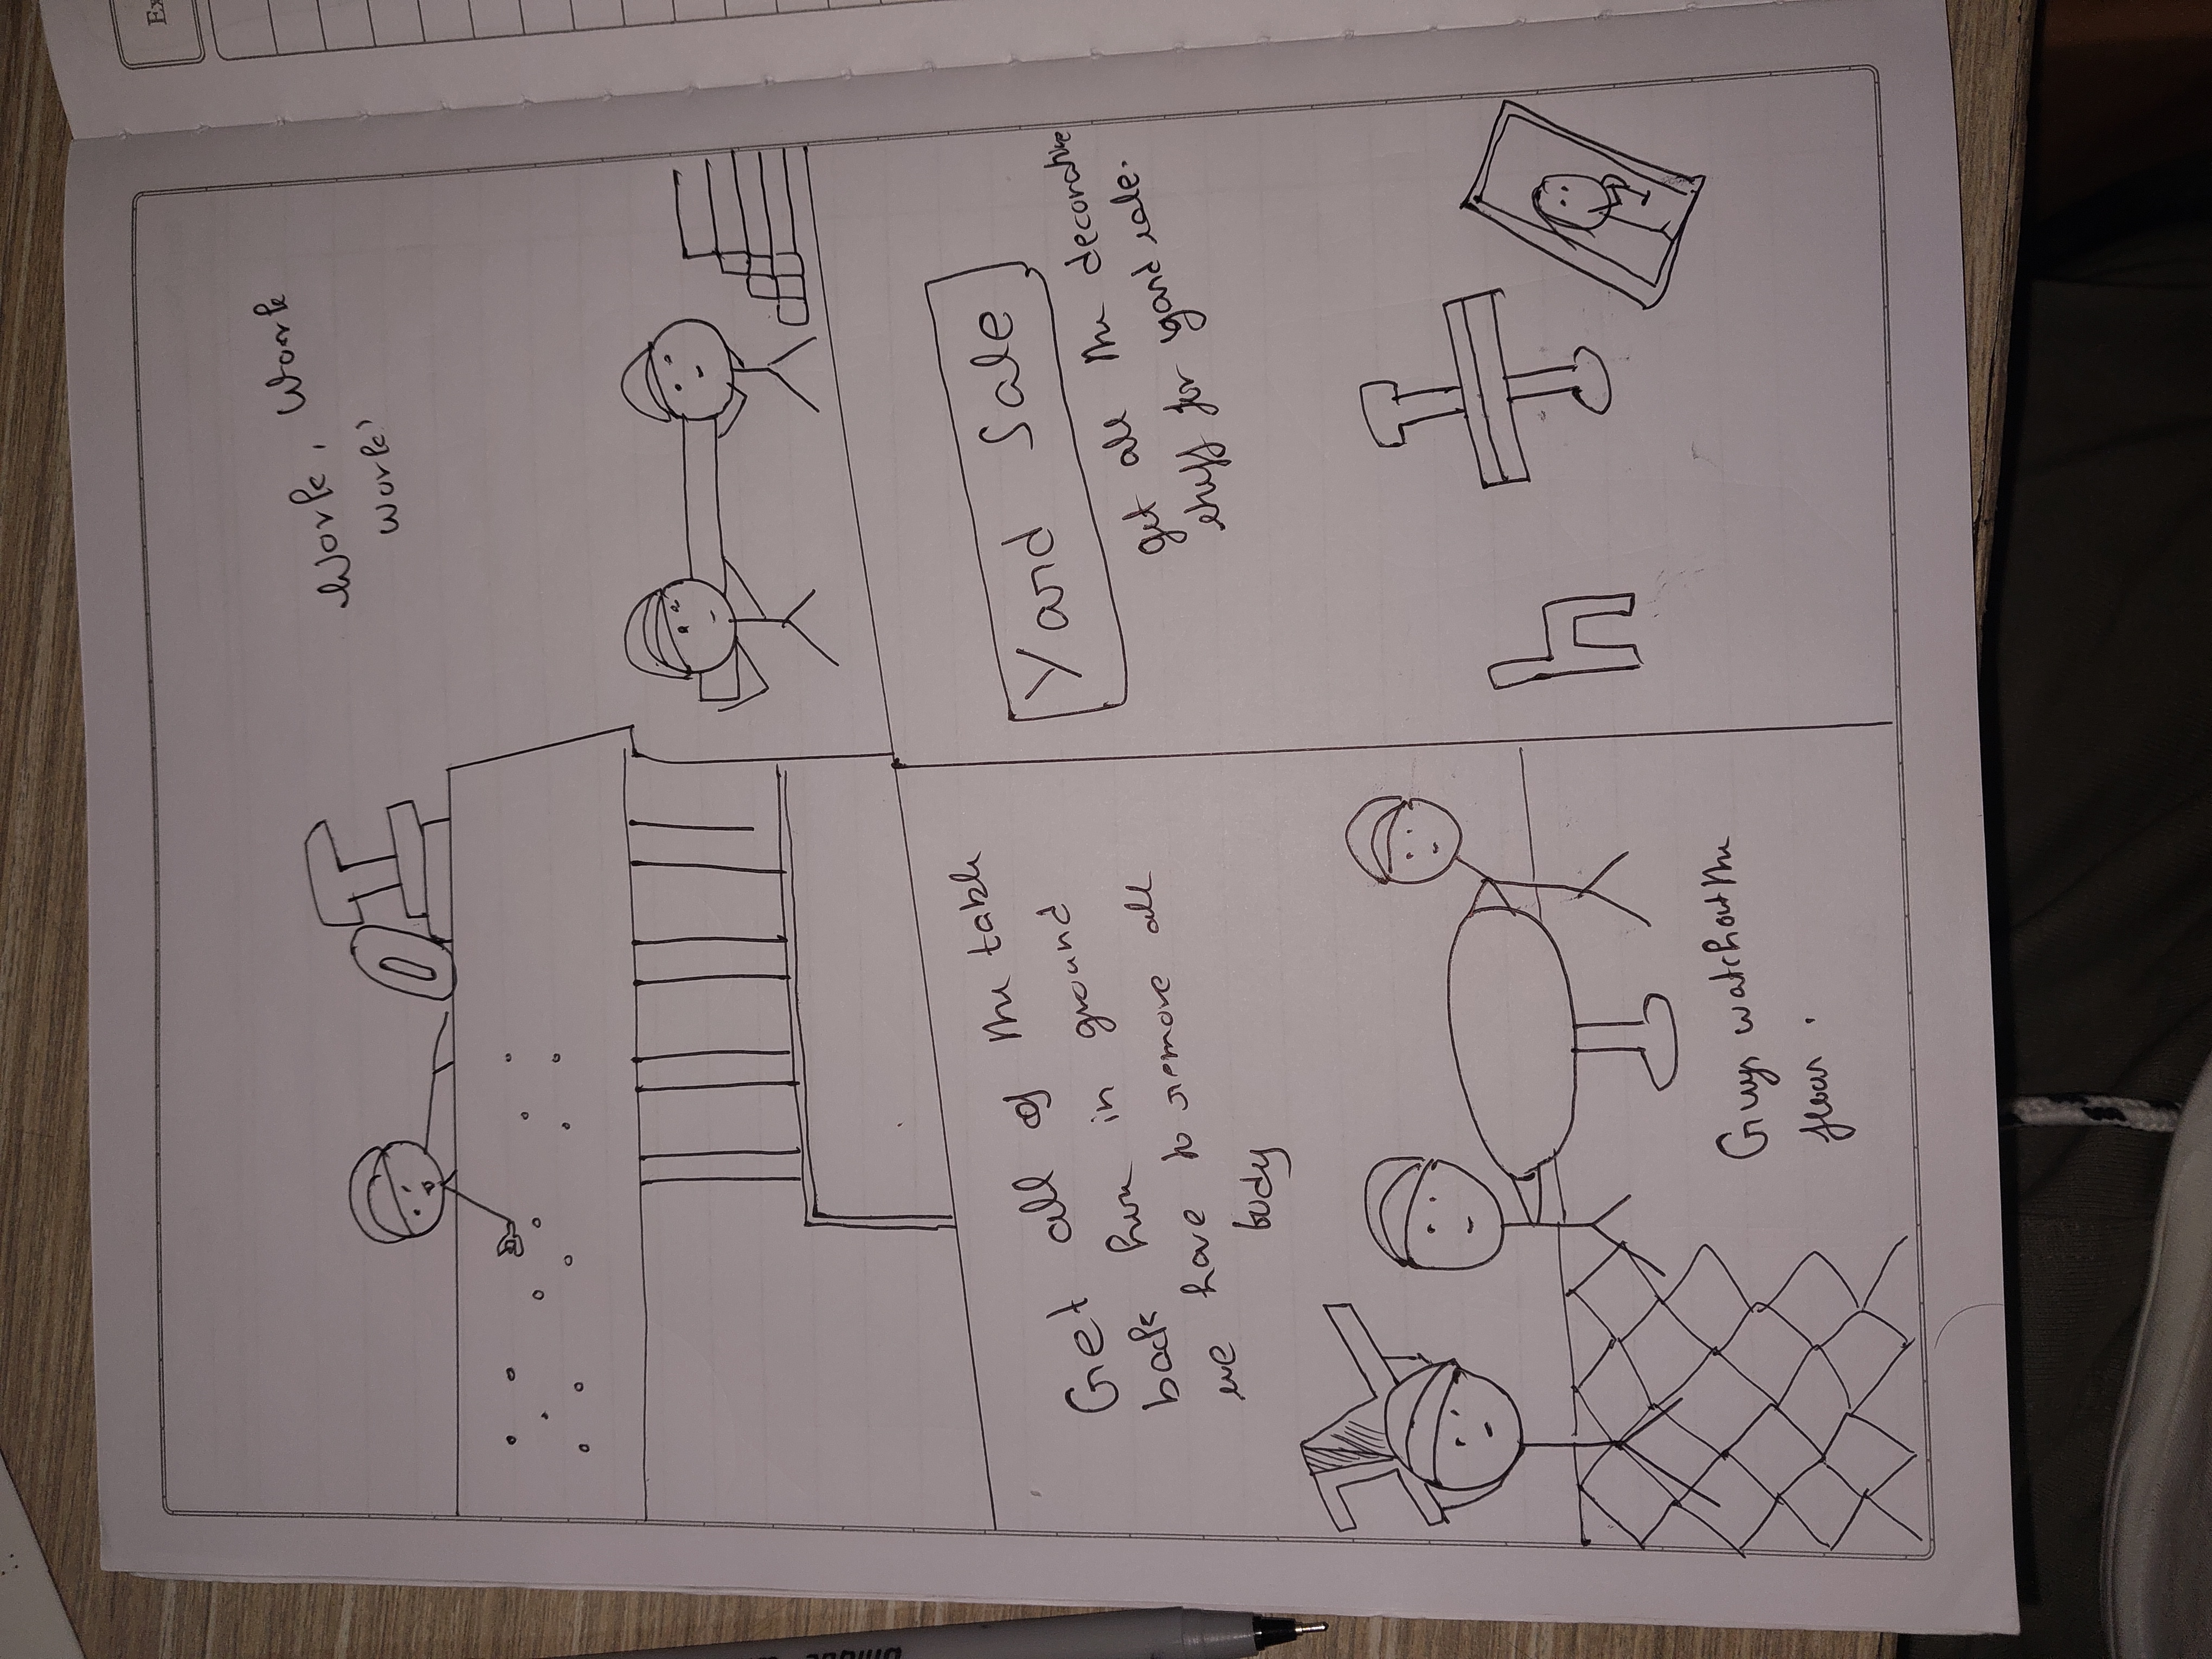 Work, Work
Work!
Get all of the table
back here in ground
we have to remove all
body
Guys watchout the
floor.
Yard Sale
get all the decorative
stuff for yard sale.
Ex